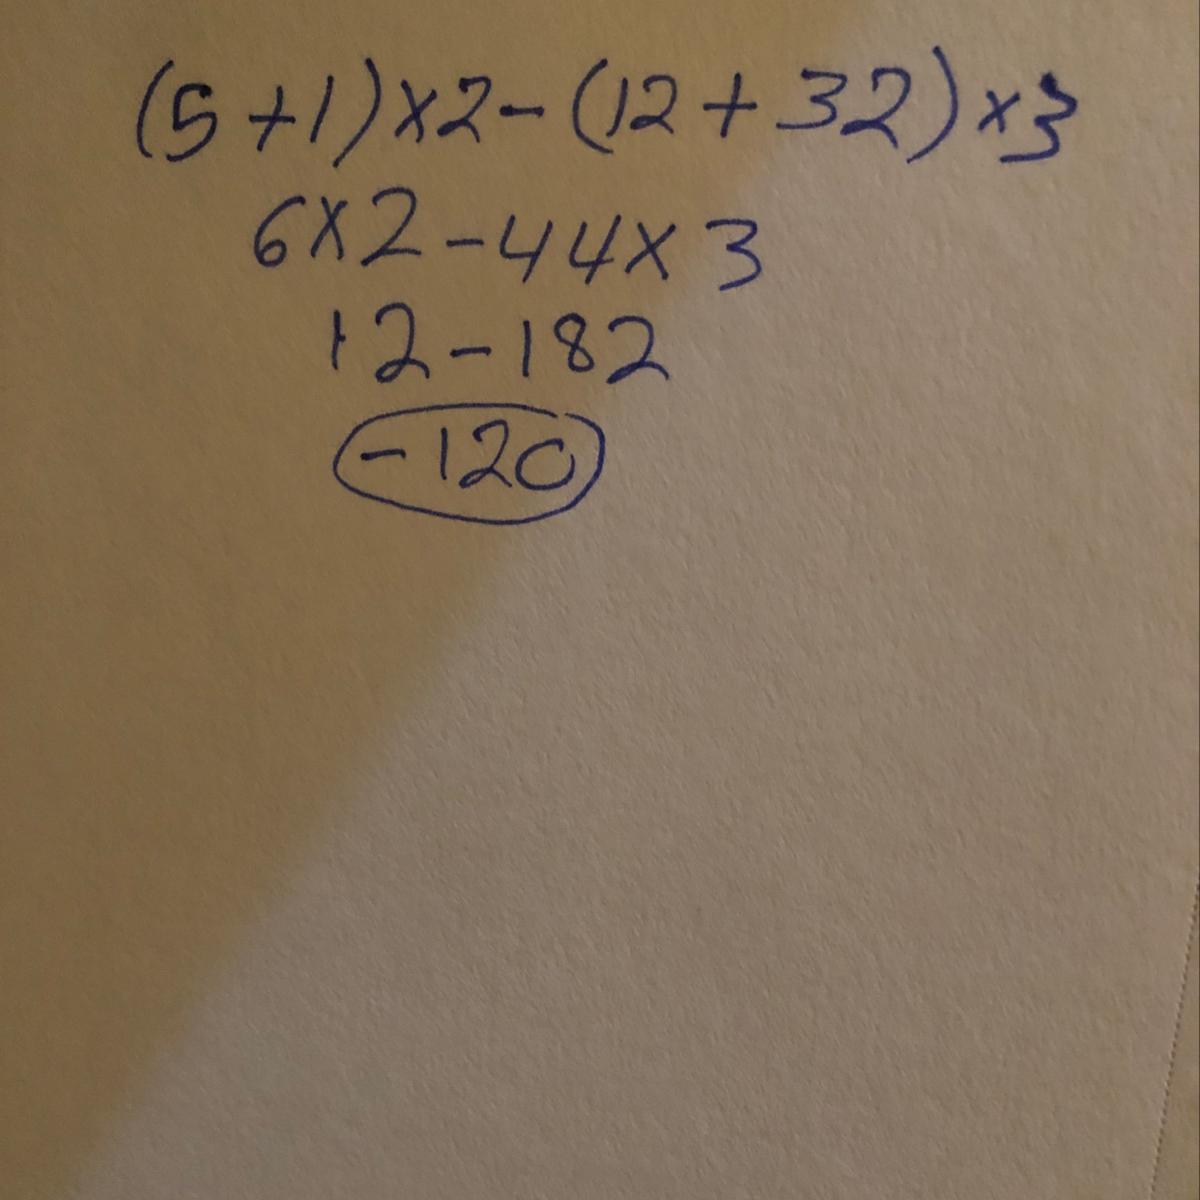 (5+1)×2-(12+32)×3
6×2-44×3
12-182
-120